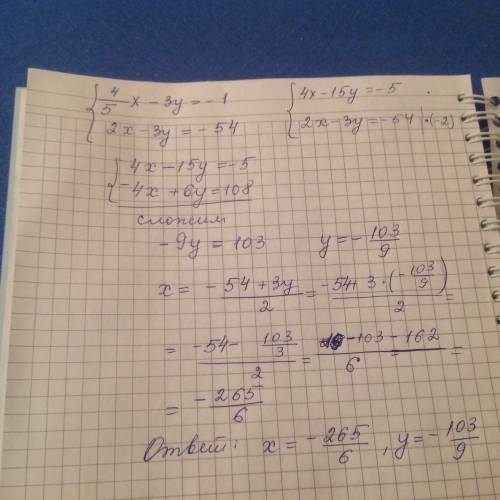 { 4/5 x - 3y = -1
2x - 3y = -54
{ 4x - 15y = -5
2x - 3y = -54 | ·(-2)
{ 4x - 15y = -5
-4x + 6y = 108
сложим
-9y = 103 y = - 103/9
x = -54 + 3y / 2 = -54 + 3·(-103/9) / 2 =
= -54 - 103/3 / 2 = -103 - 162 / 6 =
= -265/6
Ответ: x = -265/6, y = -103/9